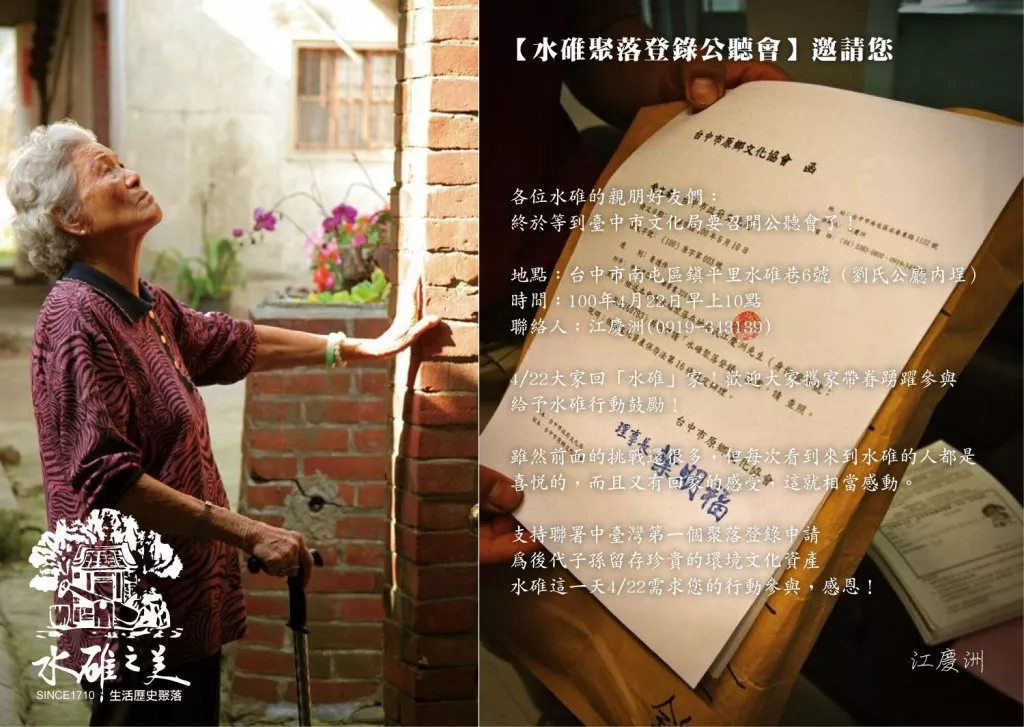 【水碓聚落登錄公聽會】邀請您
各位水碓的親朋好友們：
終於等到臺中市文化局要召開公聽會了！
地點：台中市南屯區鎮平里水碓巷6號（劉氏公廳內埕）
時間：100年4月22日早上10點
聯絡人：江慶洲(0919-343139)
4/22大家回「水碓」家！歡迎大家攜家帶眷踴躍參與
給予水碓行動鼓勵！
雖然前面的挑戰還很多，但每次看到來到水碓的人都是
喜悅的，而且又有回家的感受，這就相當感動。
支持聯署中臺灣第一個聚落登錄申請
為後代子孫留存珍貴的環境文化資產
水碓這一天4/22需求您的行動參與，感恩！
江慶洲
台中市原鄉文化協會 函
台中市原鄉文化協會
理事長
水碓之美
SINCE1710 ; 生活歷史聚落